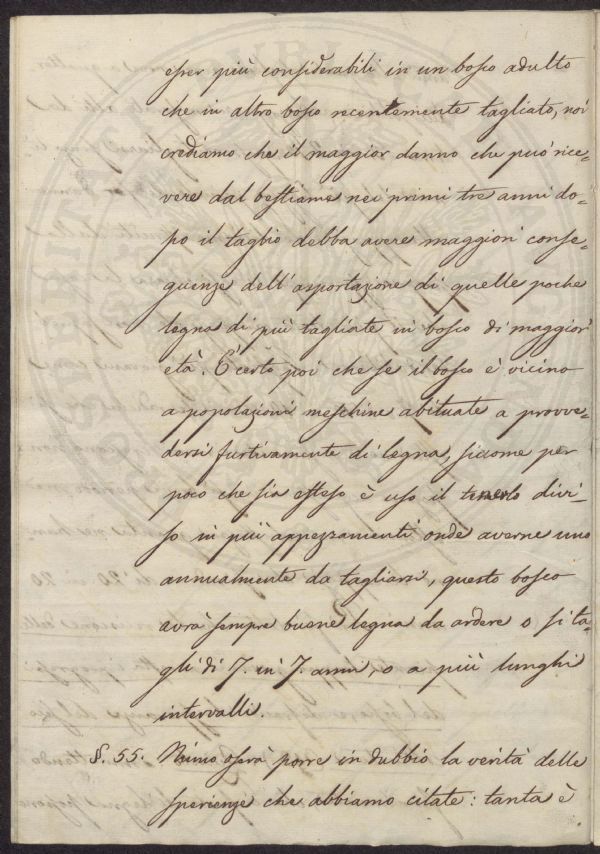 esser più considerabili in un bosco adulto
che in altro bosco recentemente tagliato, noi
crediamo che il maggior danno che può rice-
vere dal bestiame nei primi tre anni do-
po il taglio debba avere maggiori conse-
guenze dell'asportazione di quelle poche
legna di più tagliate in bosco di maggior
età. E' certo poi che se il bosco è vicino
a popolazioni meschine abituate a provve-
dersi furtivamente di legna, siccome per
poco che sia esteso è uso il tenerlo divi-
so in più appezzamenti onde averne uno
annualmente da tagliarsi, questo bosco
avrà sempre buone legna da ardere o si ta-
gli di 7. in 7. anni, o a più lunghi
intervalli.
§. 55. Niuno oserà porre in dubbio la verità delle
sperienze che abbiamo citate: tanta è